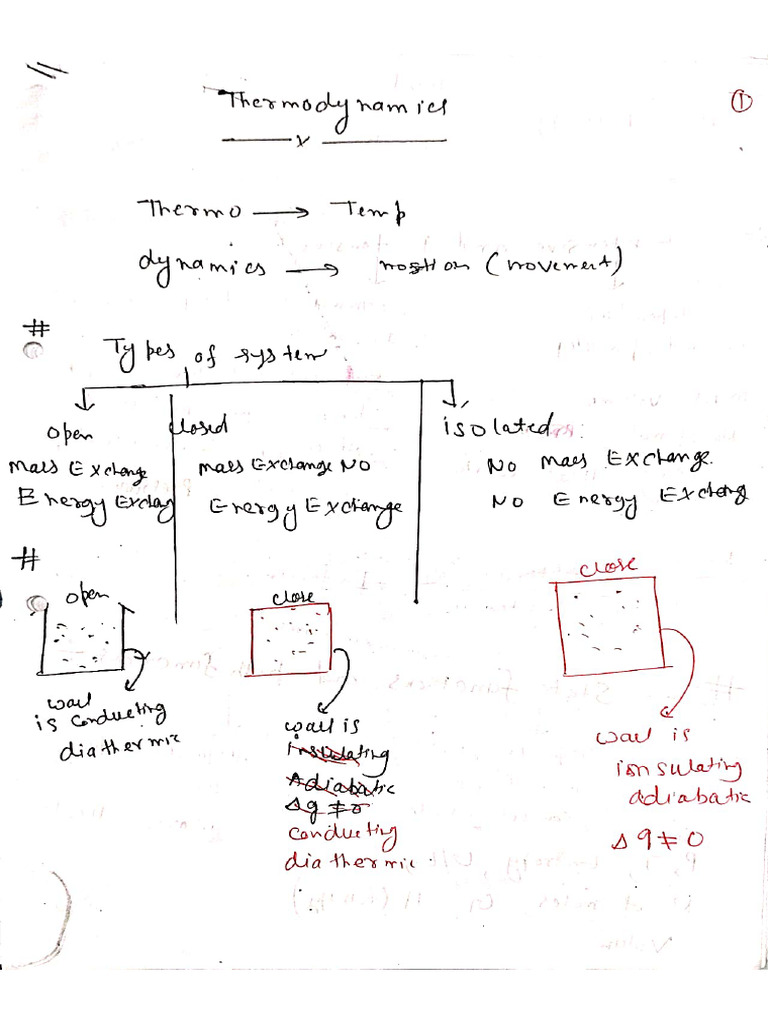 Thermodynamics
①
x
Thermo → Temp
dynamics → motion (movement)
#
Types of system
open
Mass Exchange
Energy Exchag
closed
mass Exchange NO
Energy Exchange
isolated
No mass Exchange.
No Energy Exchang
#
open
wall
is conducting
diathermic
close
wall is
insulating
Adiabatic
Δq ≠ 0
conducting
diathermic
close
wall is
ionsulating
adiabatic
Δq ≠ 0